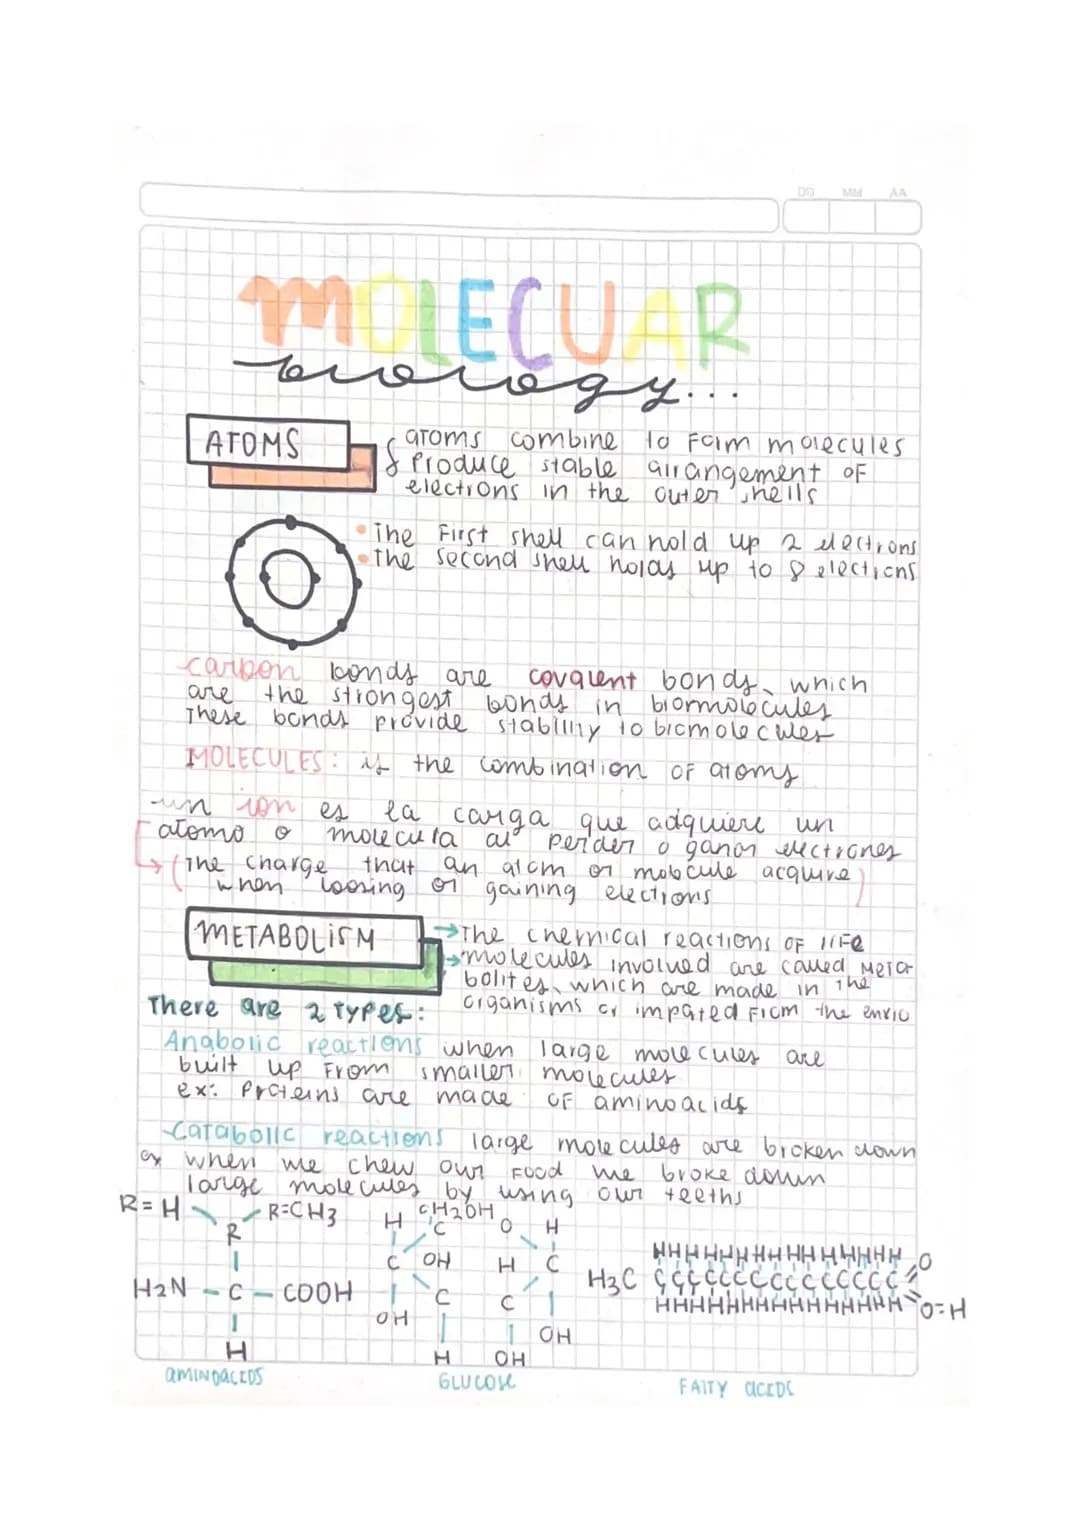 DG MM AA
MOLECUAR
biology...
ATOMS
atoms combine to form molecules
& Produce stable arrangement of
electrons in the outer shells
• The First shell can hold up 2 electrons
• The second shell holds up to 8 electrons
carbon bonds are covalent bonds, which
are the strongest bonds in biormolecules
These bonds provide stability to biomolecules
MOLECULES: is the combination of atoms
un ion es la carga que adquiere un
atomo o molecula al perder o ganar electrones
(The charge that an atom or molecule acquire)
when loosing or gaining electrons
METABOLISM
→The chemical reactions of life
→molecules involved are called Meta-
bolites, which are made in the
organisms or impated from the enviro
There are 2 types:
Anabolic reactions when large molecules are
built up from smaller molecules
ex: Proteins are made of aminoacids
Catabolic reactions large molecules are broken down
ex when we chew our food we broke down
large molecules by using our teeths
R=H R=CH3
R
H2N - C - COOH
H
AMINOACIDS
H CH2OH O H
C
C OH H C
OH C C OH
H OH
GLUCOSE
HHHHHHHHHHHHHHH O
H3C CCCCCCCCCCCCCCC
HHHHHHHHHHHHHHH O=H
FATTY ACIDS